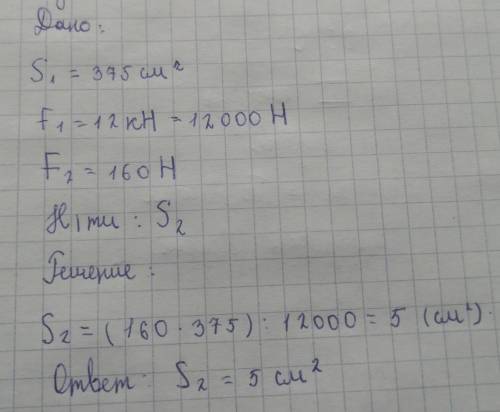 Дано:
S₁ = 375 см²
F₁ = 12 кН = 12000 Н
F₂ = 160 Н
Н|ти : S₂
Решение :
S₂ = (160 · 375) : 12000 = 5 (см²).
Ответ: S₂ = 5 см²